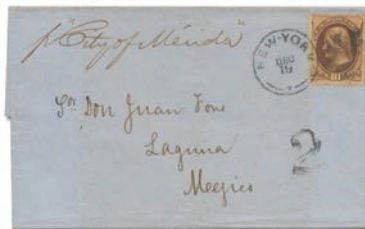 p "City of Mérida"
NEW-YORK
DEC
19
Sor Don Juan Fons
Laguna
Mexico
2